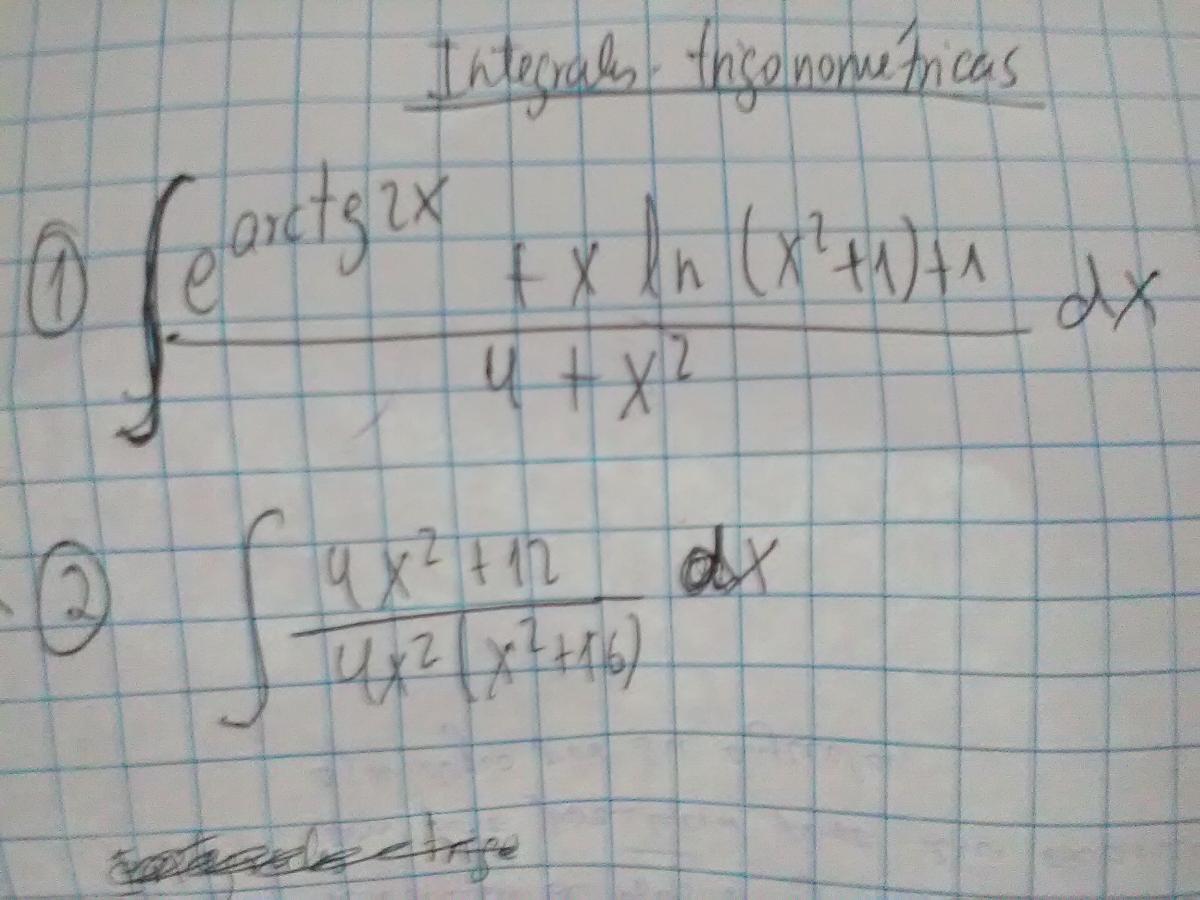 Integrales trigonométricas
① ∫ e^{arctg 2x} + x ln (x²+1)+1 / 4 + x² dx
② ∫ 4x² + 12 / 4x² (x²+16) dx